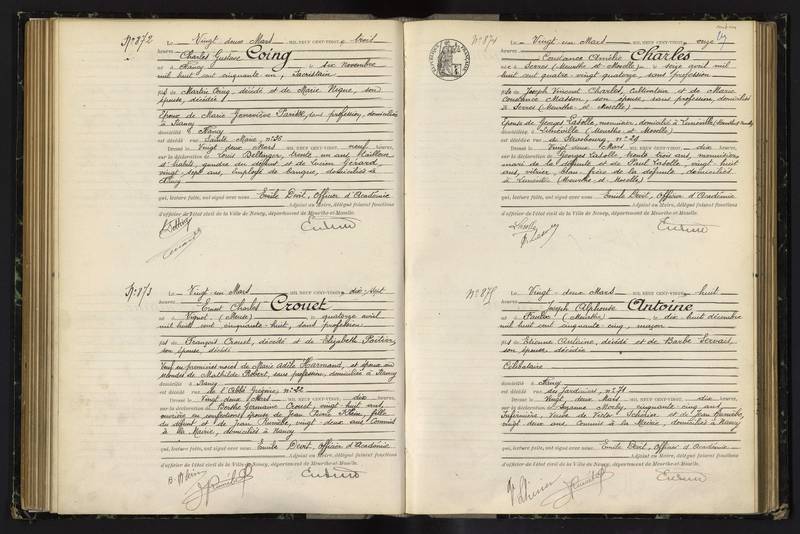 N° 872
Le Vingt deux Mars MIL NEUF CENT-VINGT, trois
heures,
Charles Gustave Coing
né à Nancy le six Novembre
mil huit cent cinquante un, Sacristain
fils de Martin Coing décédé et de Marie Vigne, son
épouse, décédée
Epoux de Marie Geneviève sans profession, domiciliée
à Nancy
domicilié à Nancy
est décédé rue Sainte Marie, n° 35
Dressé le Vingt deux Mars neuf heures
sur la déclaration de Louis Bellanger, trente un ans, tailleur
d'habits, gendre du défunt et de Lucien Gérard,
vingt sept ans, employé de banque, domiciliés à
Nancy
qui, lecture faite, ont signé avec nous Emile Devit, Officier d'Académie
Adjoint au Maire, délégué faisant fonctions
d'officier de l'état civil de la Ville de Nancy, département de Meurthe-et-Moselle.
N° 873
Le Vingt un Mars MIL NEUF CENT-VINGT, dix-sept
heures
Ernest Charles Crouet
né à Vignot (Meuse) le quatorze avril
mil huit cent cinquante-huit, sans profession
fils de François Crouet, décédé et de Elizabeth
son épouse, décédée
Veuf en premières noces de Marie Adèle Harmand, et époux en
secondes de Mathilde Robert, sans profession, domiciliée à Nancy
domicilié à Nancy
est décédé rue de l'Abbé Grégoire, n° 22
Dressé le Vingt deux Mars dix heures
sur la déclaration de Berthe Germaine Crouet, vingt-huit ans
ouvrière en confections épouse de Jean Pierre Klein, fille
du défunt et de Jean vingt deux ans Commis
à la Mairie, domiciliés à Nancy
qui, lecture faite, ont signé avec nous Emile Devit, Officier d'Académie
Adjoint au Maire, délégué faisant fonctions
d'officier de l'état civil de la Ville de Nancy, département de Meurthe-et-Moselle.
N° 874
RÉPUBLIQUE FRANÇAISE
Le Vingt un Mars MIL NEUF CENT-VINGT, onze
heures,
Constance Amélie Charles
née à Serres (Meurthe et Moselle) le seize avril mil
huit cent quatre-vingt quatorze, sans profession
fille de Joseph Vincent Charles, cultivateur et de Marie
Constance Masson, son épouse, sans profession, domiciliés
à Serres (Meurthe et Moselle)
Epouse de Georges Lasolle, menuisier, domicilié à Lunéville (Meurthe et Moselle)
domiciliée à Lunéville (Meurthe et Moselle)
est décédée rue de Strasbourg, n° 29
Dressé le Vingt deux Mars dix heures
sur la déclaration de Georges Lasolle trente trois ans, menuisier
mari de la défunte et de Paul Lasolle, vingt huit
ans, vitrier, beau-frère de la défunte, domiciliés
à Lunéville (Meurthe et Moselle)
qui, lecture faite, ont signé avec nous Emile Devit, Officier d'Académie
Adjoint au Maire, délégué faisant fonctions
d'officier de l'état civil de la Ville de Nancy, département de Meurthe-et-Moselle.
Lasolle
N° 875
Le Vingt deux Mars MIL NEUF CENT-VINGT, huit
heures,
Joseph Alphonse Antoine
né à (Meurthe) le dix huit décembre
mil huit cent cinquante cinq, maçon
fils de Etienne Antoine, décédé et de Barbe
son épouse, décédée
Célibataire
domicilié à Nancy
est décédé rue des Jardiniers, n° 71
Dressé le Vingt deux Mars dix heures
sur la déclaration de Suzanne cinquante cinq ans
Infirmière, Veuve de Victor et de Jean
vingt deux ans, Commis à la Mairie, domiciliés à Nancy
qui, lecture faite, ont signé avec nous Emile Devit, Officier d'Académie
Adjoint au Maire, délégué faisant fonctions
d'officier de l'état civil de la Ville de Nancy, département de Meurthe-et-Moselle.